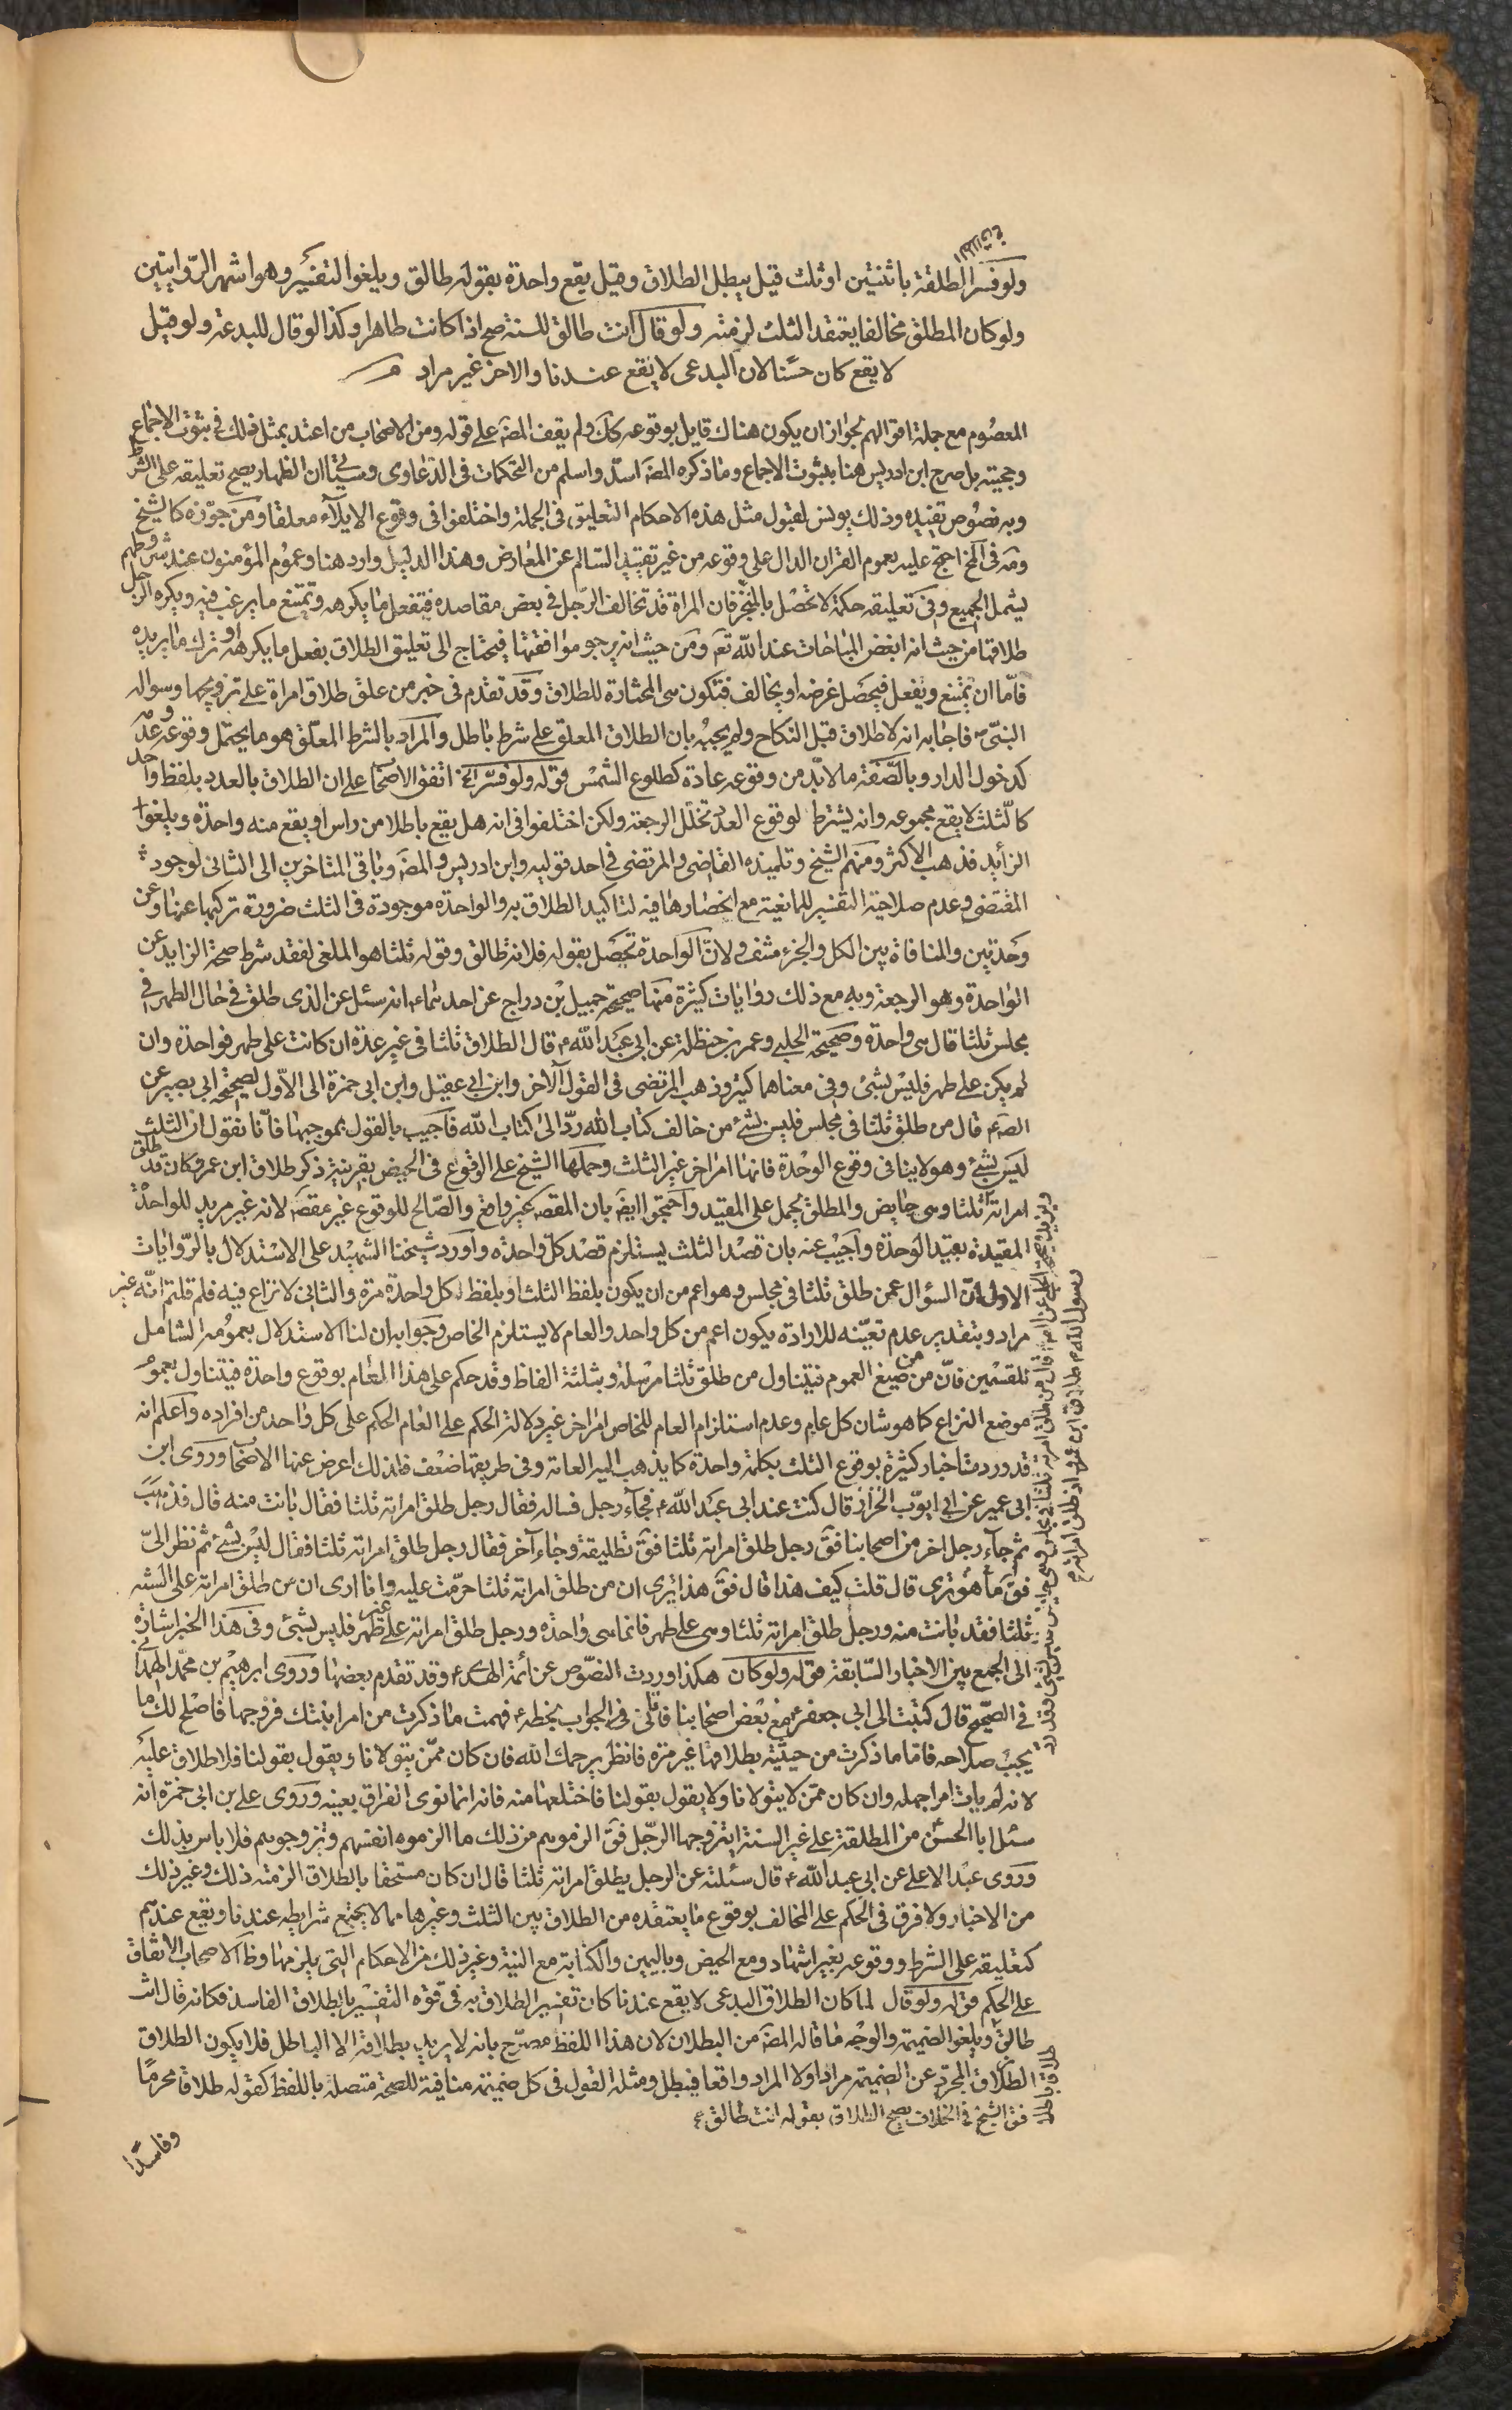 ولو فسر الطلقة باثنتين او ثلث قيل يبطل الطلاق وقيل يقع واحدة بقوله طالق ويلغوا التفسير وهو اشهر الروايتين
ولو كان المطلق مخالفا يعتقد الثلث لزمته ولو قال انت طالق للسنة صح اذا كانت طاهرا وكذا لو قال للبدعة ولو قيل
لا يقع كان حسنا لان البدعى لا يقع عندنا والاخر غير مراد
المعصوم مع جملة اقوالهم لجواز ان يكون هناك قايل بوقوعه كك ولم يقف المصَ على قوله ومن الاصحاب من اعتد بمثل ذلك فى ثبوت الاجماع
وحجيته بل صرح ابن ادريس هنا بثبوت الاجماع وما ذكره المصَ اسدّ واسلم من التحكمات فى الدعاوى وسيجئ ان الظهار يصح تعليقه على الشرط
وبه نصوص تفيده وذلك يونس لقبول مثل هذه الاحكام التعليق فى الجملة واختلفوا فى وقوع الايلآء معلقا ومن جوّزه كالشيخ
ومَه فى الخ احتج عليه بعموم القران الدال على وقوعه من غير تقييد السالم عن المعارض وهذا الدليل وارد هنا وعموم المؤمنون عند شروطهم
يشمل الجميع وفى تعليقه حكمة لا تحصل بالمنجز فان المراة قد تخالف الرجل فى بعض مقاصده فتفعل ما يكرهه وتمتنع ما يرغب فيه ويكره الرجل
طلاقها من حيث انه ابغض المباحات عند الله تعَ ومن حيث انه يرجو موافقتها فيحتاج الى تعليق الطلاق بفعل ما يكرهه او ترك ما يريده
فامّا ان تمتنع ويفعل فيحصل غرضه او يخالف فتكون هى المختارة للطلاق وقد تقدم فى خبر من علق طلاق امراة على تزويجها وسواله
النبى ص فاجابه انه لا طلاق قبل النكاح ولم يجبه بان الطلاق المعلق على شرط باطل والمراد بالشرط المعلّق هو ما يحتمل وقوعه وعدمه
كدخول الدار وبالصفة ما لا بدّ من وقوعه عادة كطلوع الشمس قوله ولو فسّر الخ اتفق الاصحا على ان الطلاق بالعدد بلفظ واحد
كالثلث لا يقع مجموعه وانه يشترط لوقوع العدد تخلل الرجعة ولكن اختلفوا فى انه هل يقع باطلا من راس او يقع منه واحدة ويلغوا
الزايد فذهب الاكثر ومنهم الشيخ وتلميذه القاضى والمرتضى فى احد قوليه وابن ادريس والمصَ وباقى المتاخرين الى الثانى لوجود
المقتضى وعدم صلاحية التفسير للمانعية مع انحصارها فيه لتاكيد الطلاق به والواحدة موجودة فى الثلث ضرورة تركبها عنها وعن
وحدتين والمنافاة بين الكل والجزء منتف ولانّ الواحدة تحصل بقوله فلانة طالق وقوله ثلثا هو الملغى لفقد شرط صحة الزايد عن
الواحدة وهو الرجعة وبه مع ذلك روايات كثيرة منها صحيحة جميل بن دراج عن احدهما ع انه سئل عن الذى طلق فى حال الطهر فى
مجلس ثلثا قال هى واحدة وصحيحة الحلبى وعمر بن حنظلة عن ابى عبد الله ع قال الطلاق ثلثا فى غير عدة ان كانت على طهر فواحدة وان
لم يكن على طهر فليس بشئ وفى معناهما كثير وذهب المرتضى فى القول الاخر وابن ابى عقيل وابن ابى حمزة الى الاول لصحيحة ابى بصير عن
الصَ ع قال من طلق ثلثا فى مجلس فليس بشئ من خالف كتاب الله ردّ الى كتاب الله فاجيب بالقول بموجبها فانّا نقول ان الثلث
ليس بشئ وهو لا ينافى وقوع الوحدة فانها امر اخر غير الثلث وحملها الشيخ على الوقوع فى الحيض بقرينة ذكر طلاق ابن عمر وكان قد طلق
امراته ثلثا وهى حايض والمطلق يحمل على المقيد واحتجوا ايضَ بان المقصَ غير واقع والصالح للوقوع غير مقصَ لانه غير مريد للواحدة
المقيدة بقيد الوحدة واجيب عنه بان قصد الثلث يستلزم قصد كل واحدة واورد شيخنا الشهيد على الاستدلال بالروايات
الاول ان السؤال عمن طلق ثلثا فى مجلس وهو اعم من ان يكون بلفظ الثلث او بلفظ لكل واحدة مرة والثانى لا نزاع فيه فلم قلتم انّه غير
مراد وبتقدير عدم تعيّنه للارادة يكون اعم من كل واحد والعام لا يستلزم الخاص وجوابه ان لنا الاستدلال بعمومه الشامل
للقسمين فانّ من صيغ العموم فيتناول من طلق ثلثا مرسلة وبثلثة الفاظ وقد حكم على هذا العام بوقوع واحدة فيتناول بعمومه
موضع النزاع كما هو شان كل عام وعدم استلزام العام للخاص امر اخر غير دلالة الحكم على العام الحكم على كل واحد من افراده واعلم انه
قد وردت اخبار كثيرة بوقوع الثلث بكلمة واحدة كما يذهب اليه العامة وفى طريقها ضعف فلذلك اعرض عنها الاصحاب وروى ابن
ابى عمير عن ابى ايوب الخزاز قال كنت عند ابى عبد الله ع فجآء رجل فساله فقال رجل طلق امراته ثلثا فقال بانت منه قال فذهب
ثم جآء رجل اخر من اصحابنا فقَ رجل طلق امراته ثلثا فقَ تطليقة وجاء آخر فقال رجل طلق امراته ثلثا فقال ليس بشئ ثم نظر الىّ
فقَ ما هو ترى قال قلت كيف هذا قال فقَ هذا يرى ان من طلق امراته ثلثا حرّمت عليه وانا ارى ان من طلق امراته على السنة
ثلثا فقد بانت منه ورجل طلق امراته ثلثا وهى على طهر فانما هى واحدة ورجل طلق امراته على غير طهر فليس بشئ وفى هذا الخبر اشارة
الى الجمع بين الاخبار السابقة قوله ولو كان هكذا وردت النصوص عن ائمة الهدى ع وقد تقدم بعضها وروى ابرهيم بن محمد الهمدانى
فى الصحيح قال كتبت الى ابى جعفر ع مع بعض اصحابنا فاتانى فى الجواب بخطه ع فهمت ما ذكرت من امر ابنتك وزوجها فاصلح لك ما
يجب صلاحه فاما ما ذكرت من حيثه بطلاقها غير مرة فانظر يرحمك الله فان كان ممّن يتولانا ويقول بقولنا فلا طلاق عليه
لانه لم يات امرا جهله وان كان ممّن لا يتولانا ولا يقول بقولنا فاختلعها منه فانه انما نوى الفراق بعينه وروى على بن ابى حمزة انه
سئل ابا الحسن ع من المطلقة على غير السنة ايتزوجها الرّجل فقَ الزموهم من ذلك ما الزموه انفسهم وتزوجوهم فلا باس بذلك
وروى عبد الاعلى عن ابى عبد الله ع قال سئلته عن الرجل يطلق امراته ثلثا قال ان كان مستخفا بالطلاق الزمته ذلك وغير ذلك
من الاخبار ولا فرق فى الحكم على المخالف بوقوع ما يعتقده من الطلاق بين الثلث وغيرها مما لا يجتمع شرايطه عندنا ويقع عندهم
كتعليقه على الشرط ووقوعه بغير اشهاد ومع الحيض وباليمين والكتابة مع النية وغير ذلك من الاحكام التى يلزمها وظَ الاصحاب الاتفاق
على الحكم قوله ولو قال لما كان الطلاق البدعى لا يقع عندنا كان تفسير الطلاق به فى قوة التفسير بالطلاق الفاسد فكانه قال انت
طالق ويلغو الضميمة والوجه ما قاله المصَ من البطلان لان هذا اللفظ مصرّح بانه لا يريد بطلاقه الا الباطل فلا يكون الطلاق
الطلاق المجرد عن الضميمة مرادا ولا المراد واقعا فيبطل ومثله القول فى كل ضميمة منافية للصحة متصلة باللفظ كقوله طلاقا محرمًا
فقَ الشيخ فى الخلاف يصح الطلاق بقوله انت طالق
وفاسدًا